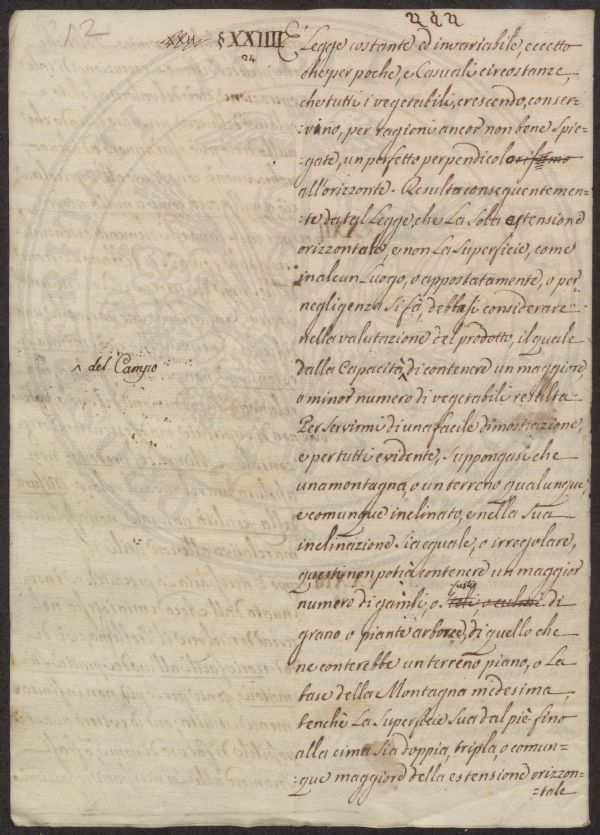 12
222
§ XXIIII
24
È Legge costante ed invariabile, eccetto
che per poche, e Casuali circostanze,
che tutti i vegetabili, crescendo, conser-
:vino, per ragioni ancor non bene Spie-
:gate, un perfetto perpendicolo
all'orizzonte. Resulta conseguentemen-
:te da tal Legge, che La Sola estensione
orizzontale, e non La Superficie, come
in alcun Luogo, o appostatamente, o per
negligenza Si fà, debbasi considerare
nella valutazione del prodotto, il quale
dalla Capacità ^ di contenere un maggiore
^ del Campo
o minor numero di vegetabili resulta.
Per Servirmi di una facile dimostrazione,
e per tutti evidente, Suppongasi che
una montagna, o un terreno qualunque,
e comunque inclinato, e nella Sua
inclinazione Sia eguale, o irregolare,
questi non potrà contenere un maggior
numero di gambi, o fusti di
grano o piante arboree, di quello che
ne conterebbe un terreno piano, o La
base della Montagna medesima,
benchè La Superficie Sua dal piè fino
alla cima Sia doppia, tripla, o comun-
:que maggiore della estensione orizzon-
:tale